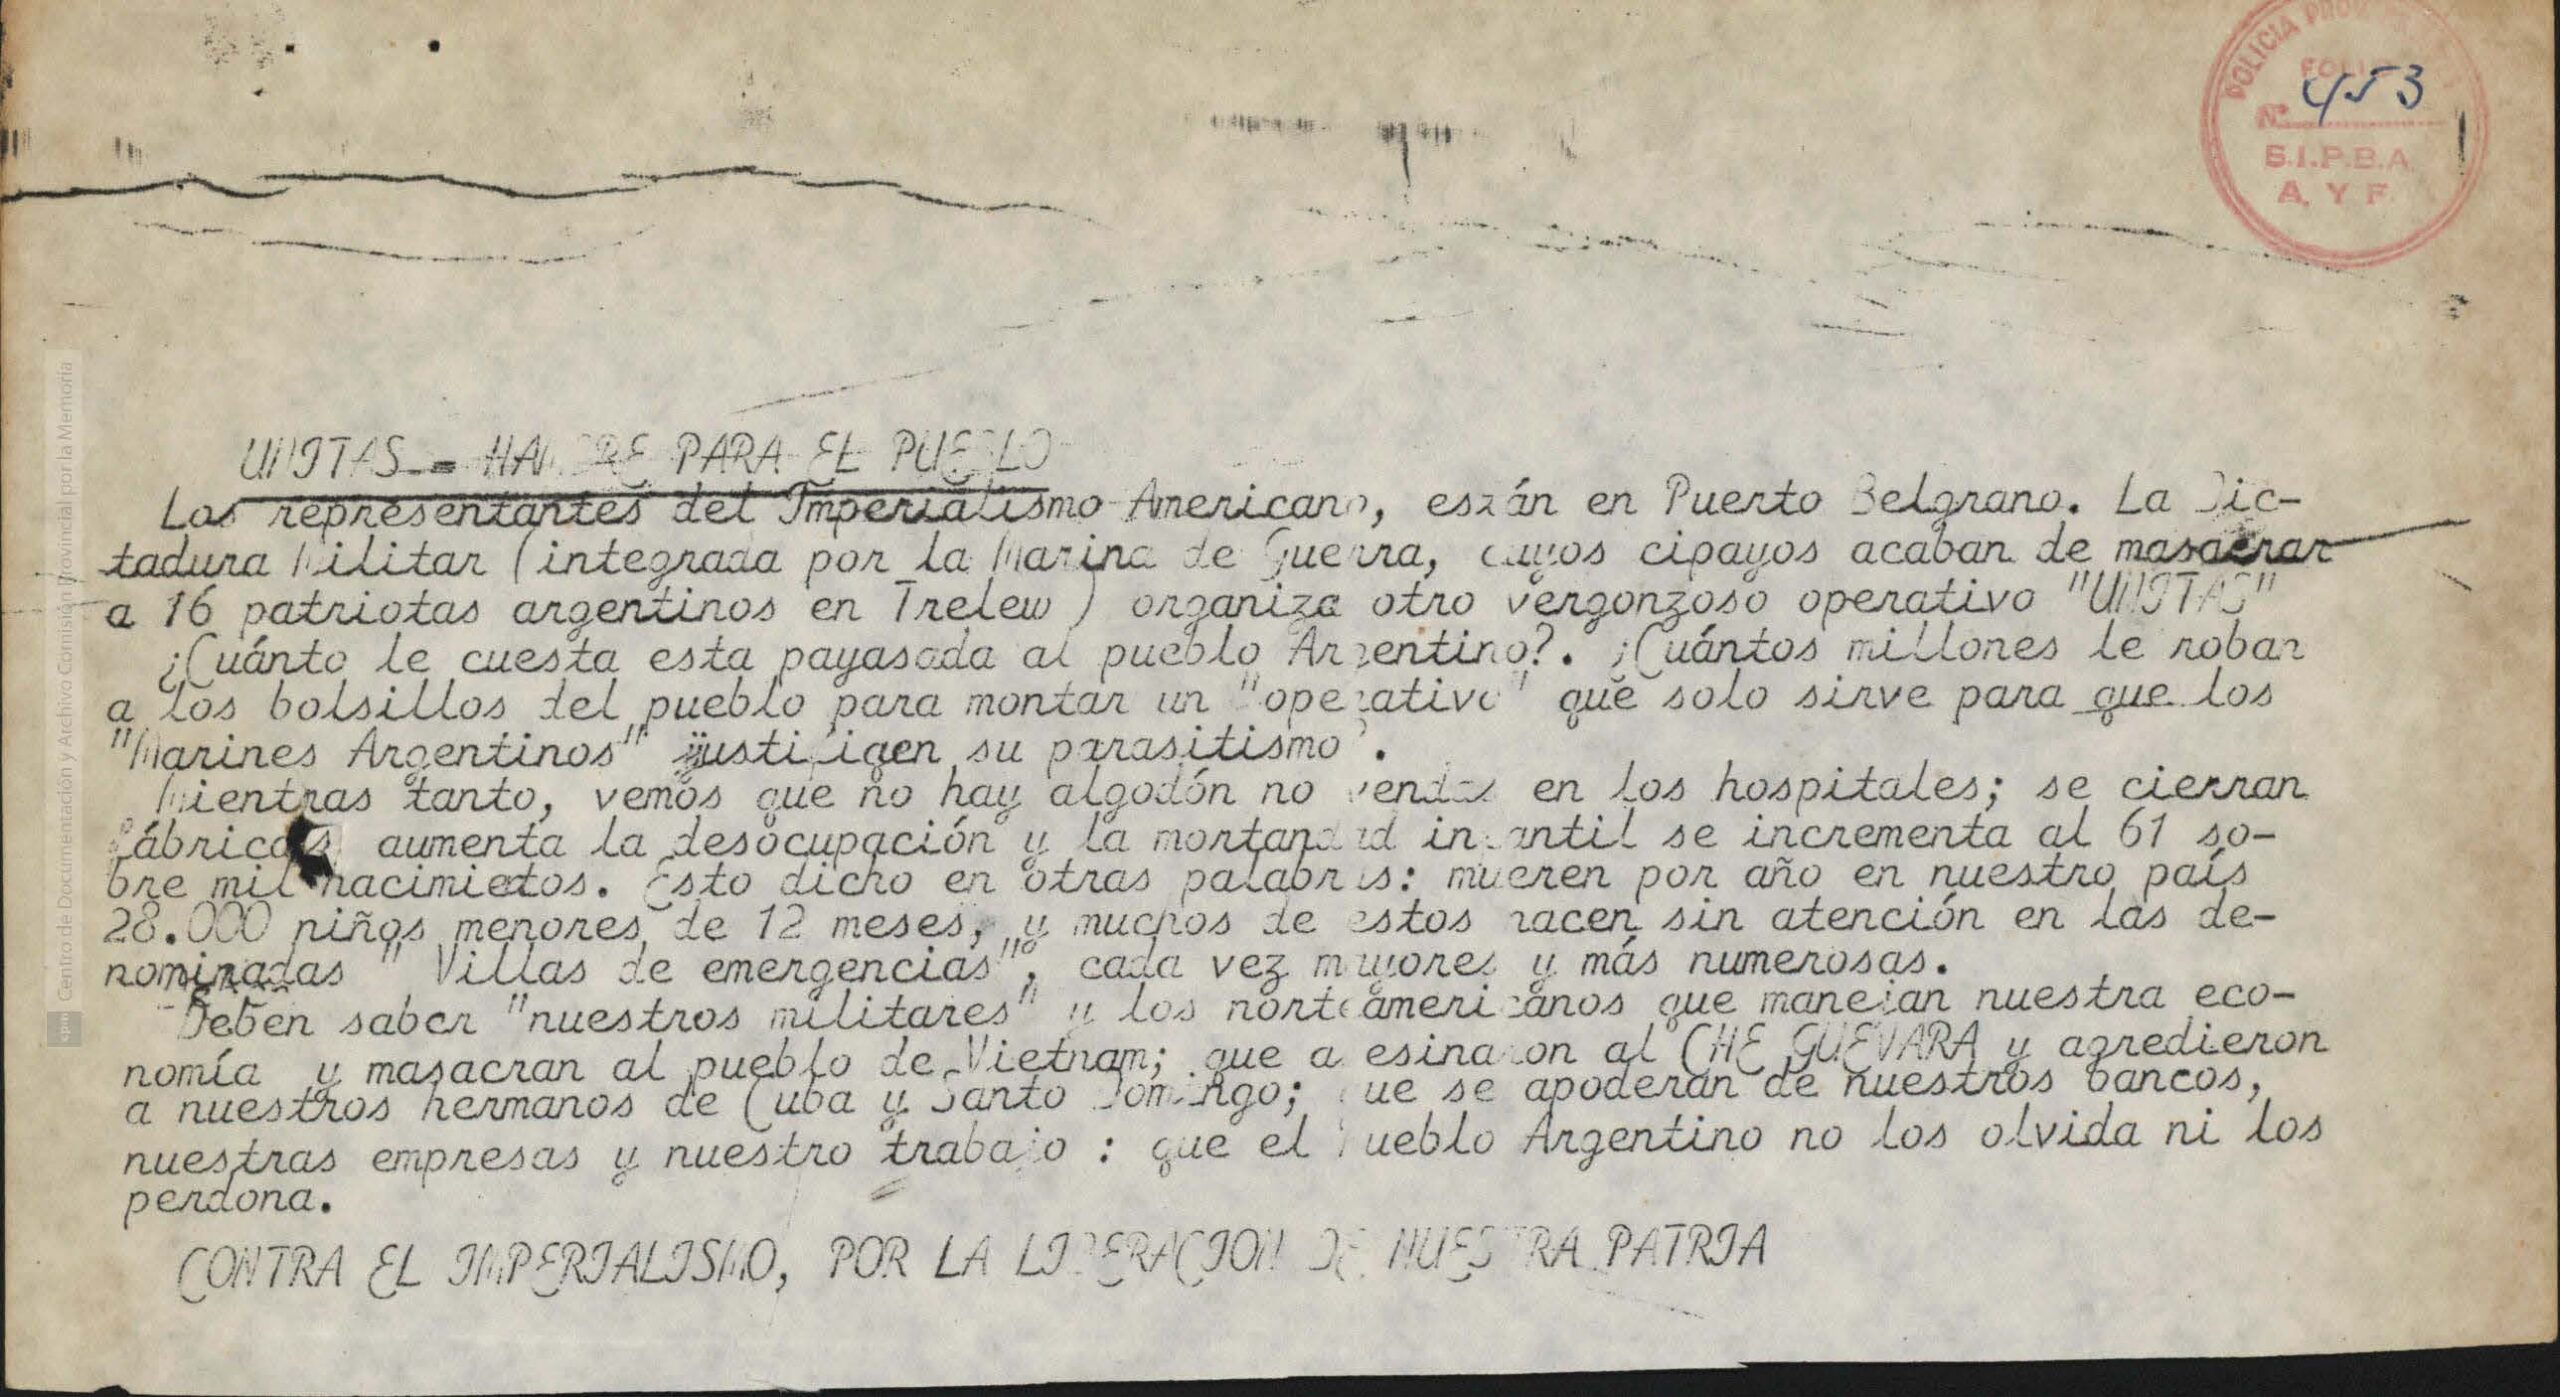 POLICIA PROV.
FOLIO
Nº 453
S.I.P.B.A
A. Y F.
UNITAS = HAMBRE PARA EL PUEBLO
Los representantes del Imperialismo Americano, están en Puerto Belgrano. La Dic-
tadura Militar (integrada por la Marina de Guerra, cuyos cipayos acaban de masacrar
a 16 patriotas argentinos en Trelew ) organiza otro vergonzoso operativo "UNITAS"
¿Cuánto le cuesta esta payasada al pueblo Argentino?. ¿Cuántos millones le roban
a los bolsillos del pueblo para montar un "operativo" que solo sirve para que los
"Marines Argentinos" justifiquen su parasitismo?.
Mientras tanto, vemos que no hay algodón no vendas en los hospitales; se cierran
fábricas, aumenta la desocupación y la mortandad infantil se incrementa al 61 so-
bre mil nacimietos. Esto dicho en otras palabras: mueren por año en nuestro país
28.000 niños menores de 12 meses, y muchos de estos nacen sin atención en las de-
nominadas " Villas de emergencias", cada vez mayores y más numerosas.
Deben saber "nuestros militares" y los norteamericanos que manejan nuestra eco-
nomía y masacran al pueblo de Vietnam; que asesinaron al CHE GUEVARA y agredieron
a nuestros hermanos de Cuba y Santo Domingo; que se apoderan de nuestros bancos,
nuestras empresas y nuestro trabajo : que el Pueblo Argentino no los olvida ni los
perdona.
CONTRA EL IMPERIALISMO, POR LA LIBERACION DE NUESTRA PATRIA
cpm Centro de Documentación y Archivo Comisión Provincial por la Memoria